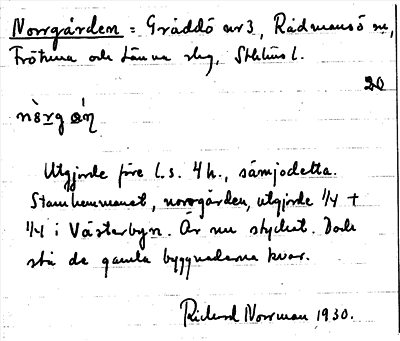 Norrgården = Gräddö nr 3, Rådmansö sn,
Frötuna och Länna skg, Sthlms l.
20
Utgjorde före l.s. 4 h., sämjodelta.
Stamhemmanet, norrgården, utgjorde 1/4 +
1/4 i Västerbyn. Är nu styckat. Dock
stå de gamla byggnaderna kvar.
Rickard Norrman 1930.